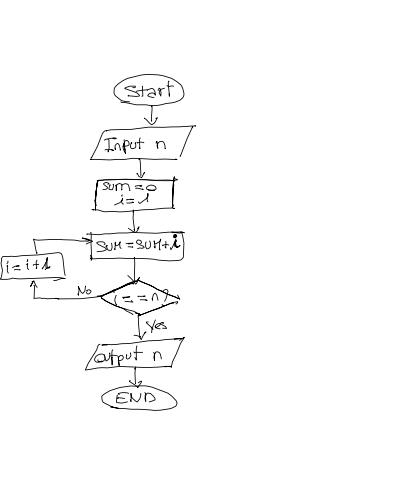 Start
Input n
sum = 0
i = 1
SUM = SUM + i
i = i + 1
No
i == n?
Yes
output n
END